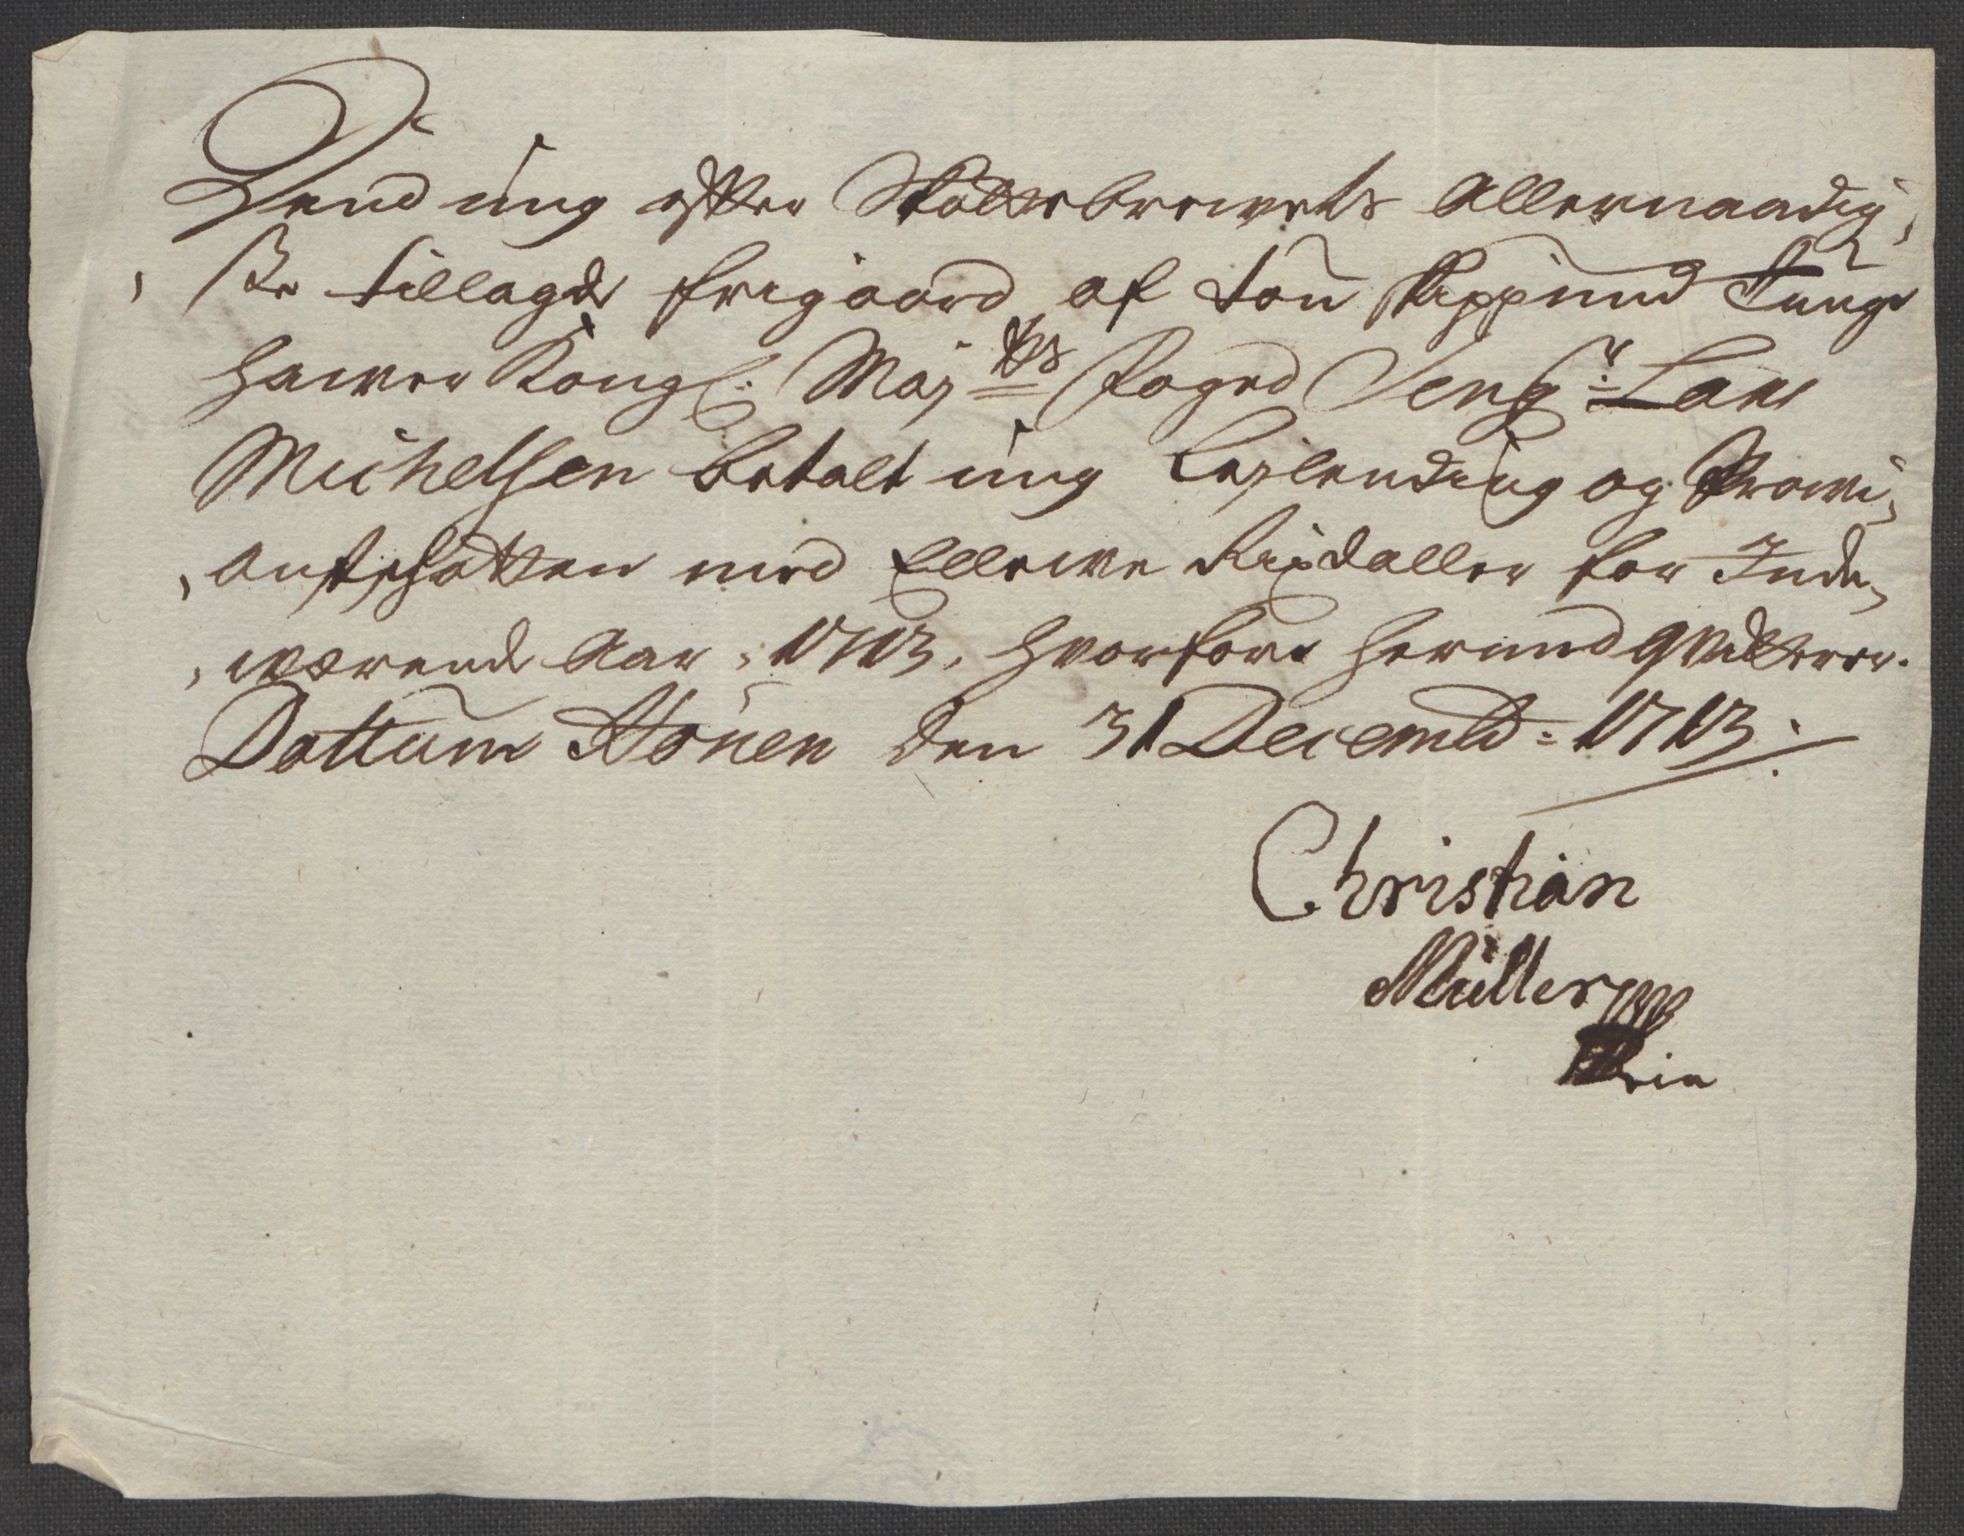 Paa min efter Skottebrewets Allernaadig,
,ste tillagde frigaard af tou Skippund Tunge
hawer Kongl: Maj:ts Foged Seig:r Lars
Michelsen betalt mig Leylending og Prowi,
,antskatten med Ellewe Rixdaller for Inde,
,wærende Aar, 1713, hworfore hermed qvitterer.
Dattum Honen den 31 Decembr: 1713.
Christian
Müller